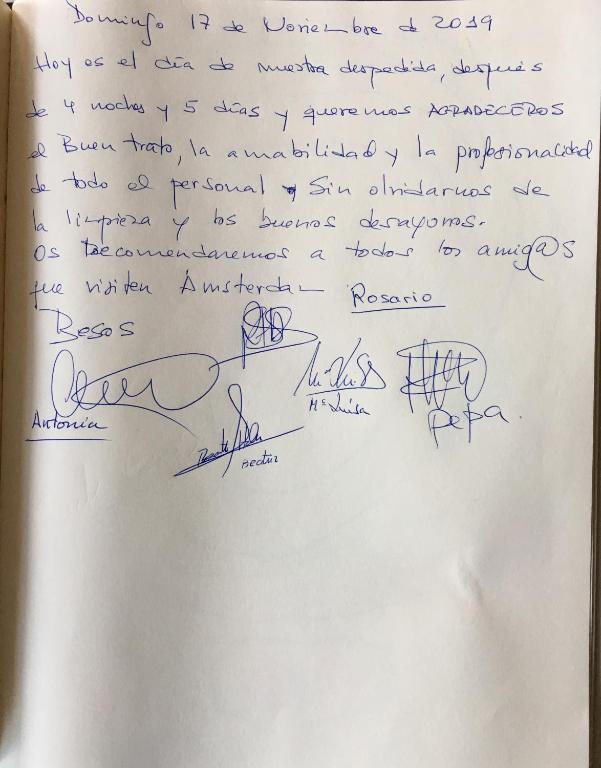 Domingo 17 de Noviembre de 2019
Hoy es el día de nuestra despedida, después
de 4 noches y 5 días y queremos AGRADECEROS
el Buen trato, la amabilidad y la profesionalidad
de todo el personal y Sin olvidarnos de
la limpieza y los buenos desayunos.
Os Recomendaremos a todos los amig@s
que visiten Ámsterdam
Rosario
Besos
Antonia
Mª Luisa
Pepa.
Beatriz